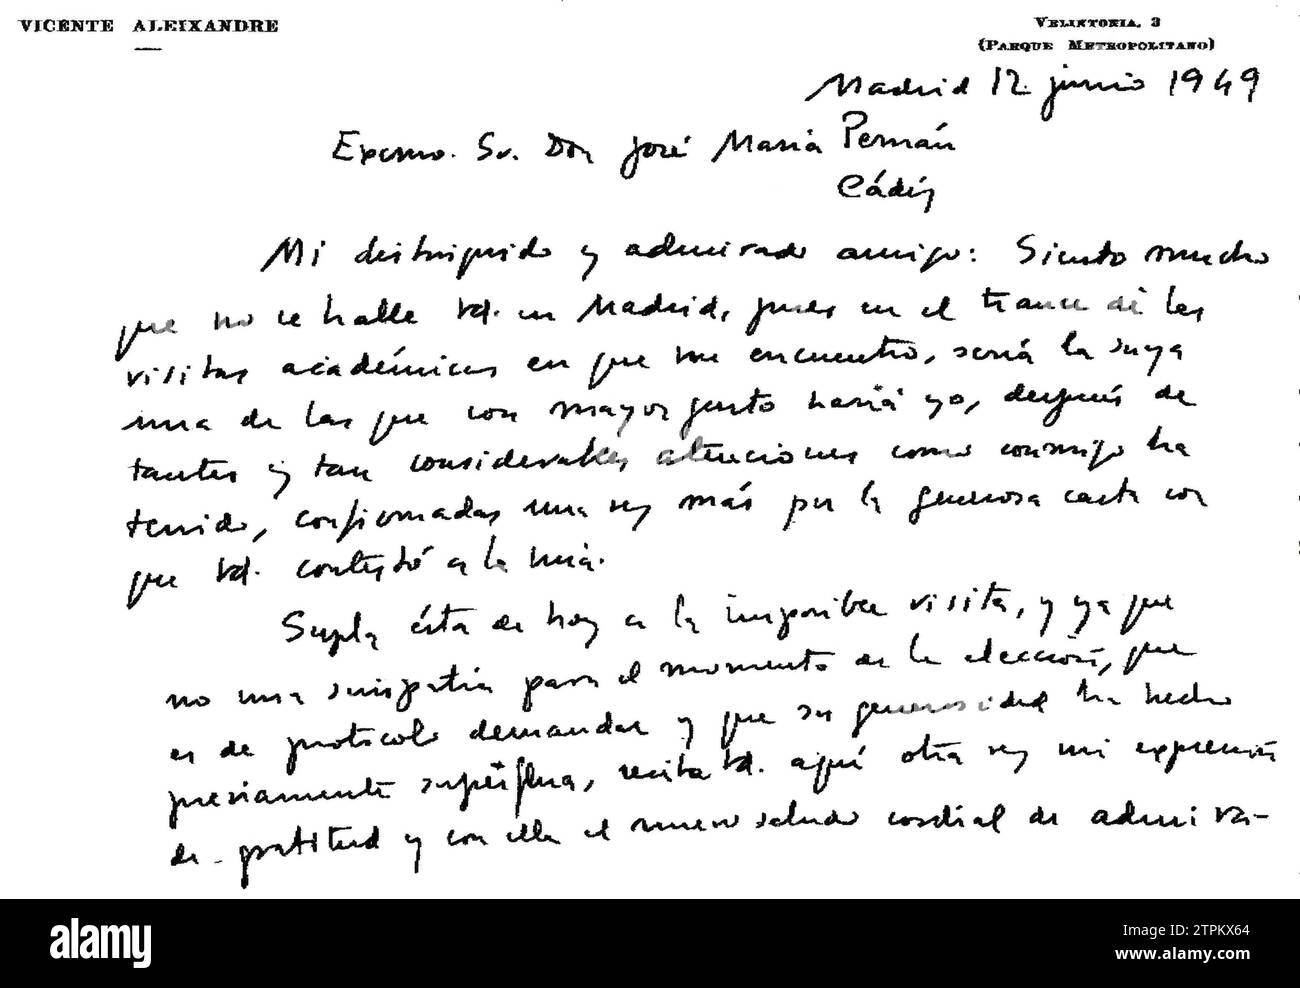 VICENTE ALEIXANDRE
VELINTONIA, 3
(PARQUE METROPOLITANO)
Madrid 12 junio 1949
Excmo. Sr. Don José María Pemán
Cádiz
Mi distinguido y admirado amigo: Siento mucho
que no se halle Vd. en Madrid, pues en el trance de las
visitas académicas en que me encuentro, sería la suya
una de las que con mayor gusto haría yo, después de
tantas y tan considerables atenciones como conmigo ha
tenido, confirmadas una vez más por la generosa carta con
que Vd. contestó a la mía.
Supla ésta de hoy a la imposible visita, y ya que
no una simpatía para el momento de la elección, que
es de protocolo demandar y que su generosidad ha hecho
previamente superflua, reciba Vd. aquí otra vez mi expresión
de gratitud y con ella el nuevo saludo cordial de admira-
alamy
Image ID: 2TPKX64
www.alamy.com